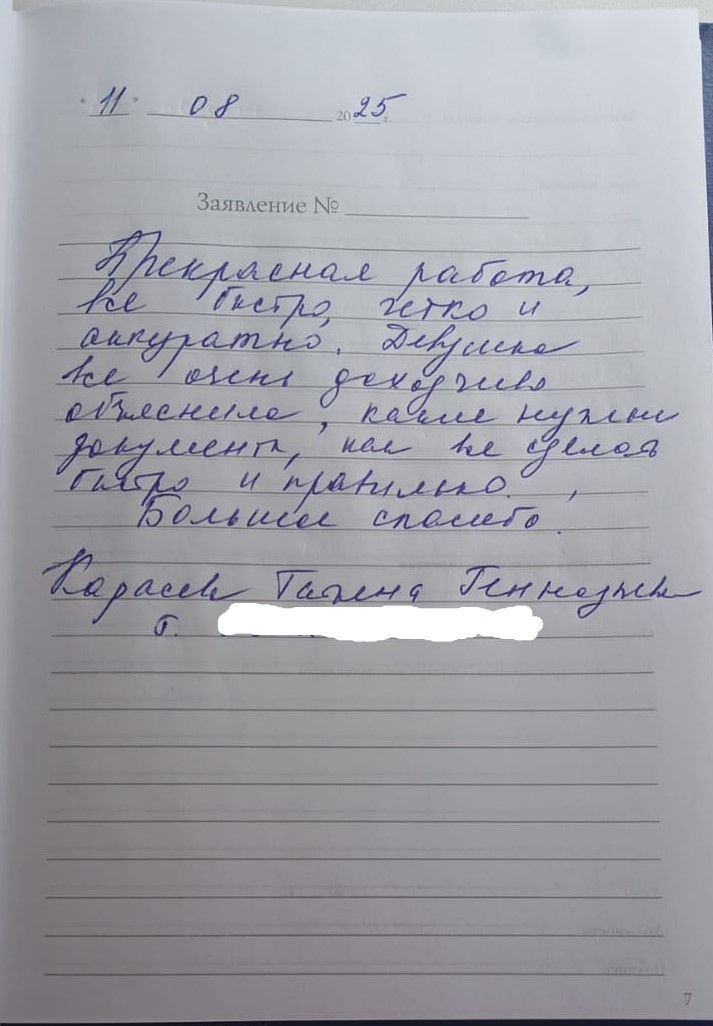 "11" 08 2025 г.
Заявление №
Прекрасная работа,
все быстро, четко и
аккуратно. Девушка
все очень доходчиво
объяснила, какие нужны
документы, как все сделать
быстро и правильно.
Большое спасибо.
Геннадьевна
г.
7